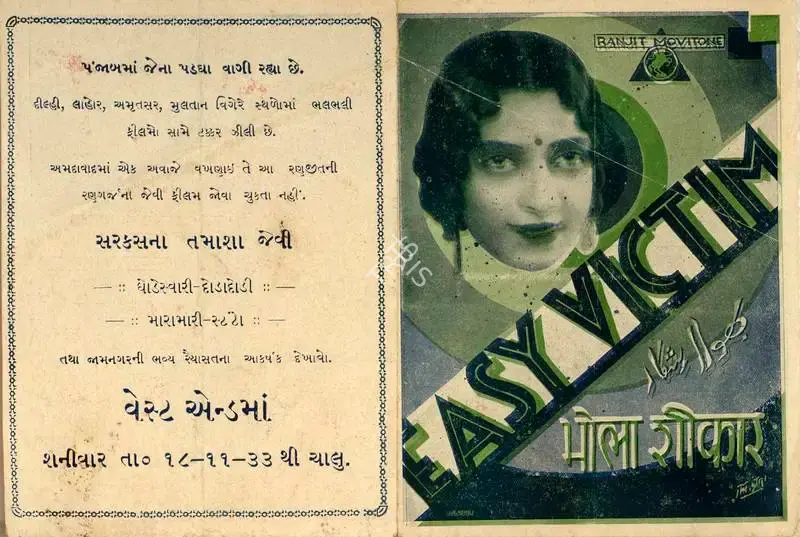 પંજાબમાં જેના પડઘા વાગી રહ્યા છે.
દીલ્હી, લાહોર, અમૃતસર, મુલતાન વિગેરે સ્થળોમાં ભલભલી
ફીલમો સામે ટક્કર ઝીલી છે.
અમદાવાદમાં એક અવાજે વખણાઈ તે આ રણજીતની
રણગર્જના જેવી ફીલમ જોવા ચુકતા નહીં.
સરકસના તમાશા જેવી
— :: ઘોડેસ્વારી-દોડાદોડી :: —
— :: મારામારી-સ્ટંટો :: —
તથા જામનગરની ભવ્ય રૈયાસતના આકર્ષક દેખાવો.
વેસ્ટ એન્ડમાં
શનીવાર તા૦ ૧૮-૧૧-૩૩ થી ચાલુ.
RANJIT MOVITONE
EASY VICTIM
بھولا شکار
भोला शीकार